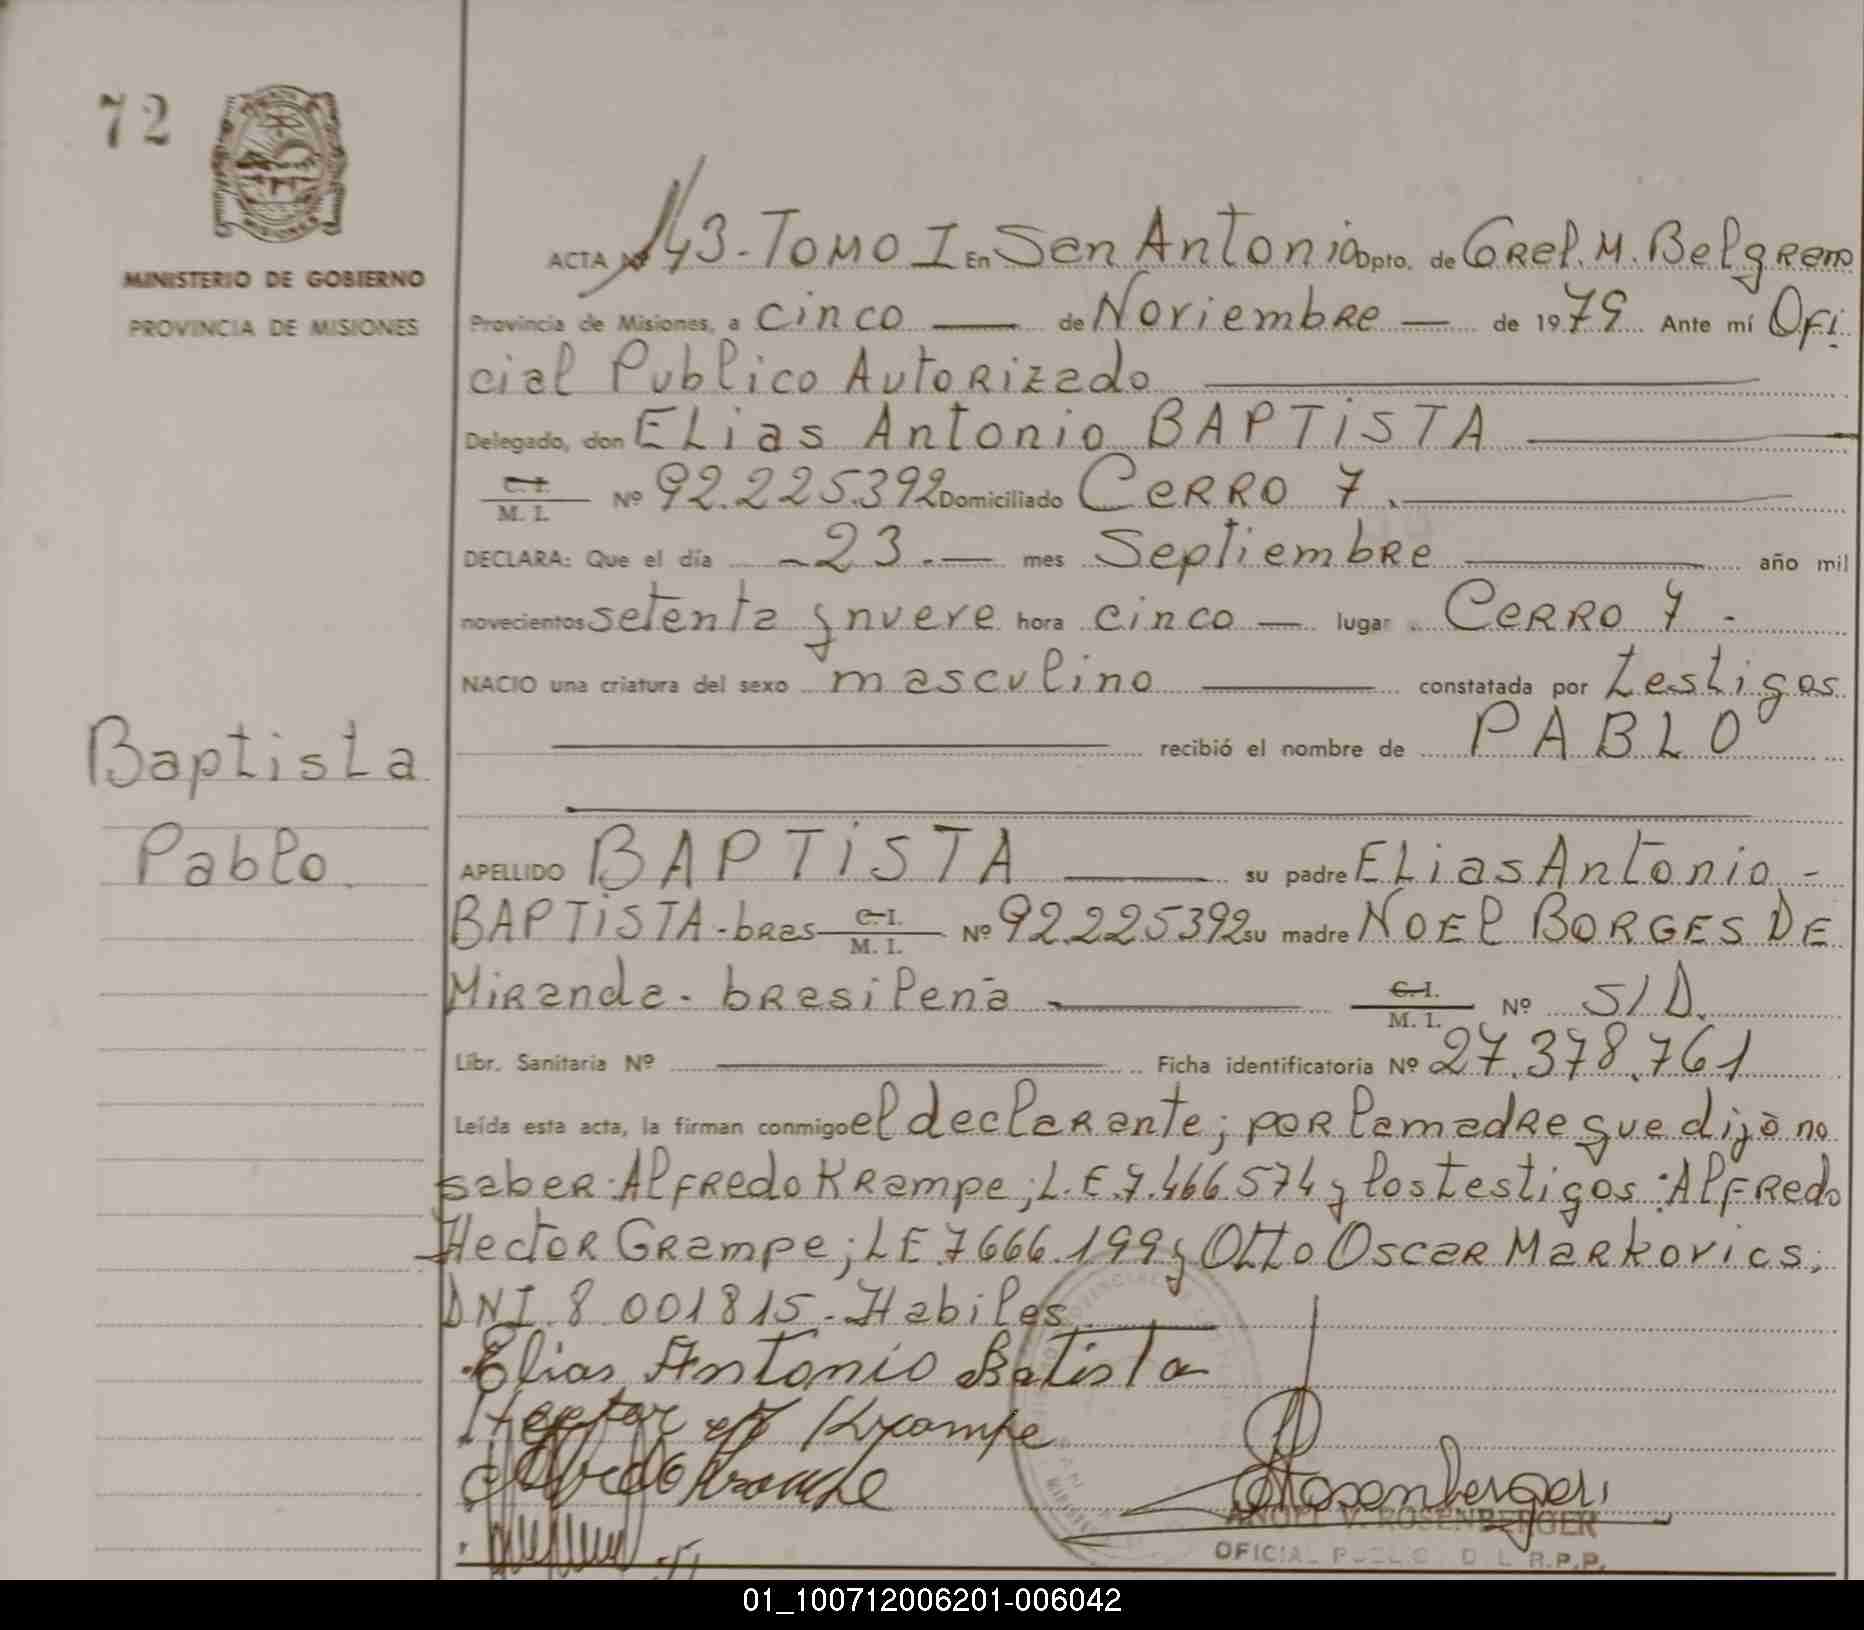 72
MINISTERIO DE GOBIERNO
PROVINCIA DE MISIONES
ACTA Nº 143-TOMO I En San Antonio Dpto. de GRal. M. BelgRano
Provincia de Misiones, a cinco de Noviembre de 1979 Ante mí Ofi
cial Publico Autorizado
Delegado, don Elias Antonio BAPTISTA
C. I.
M. I. Nº 92.225.392 Domiciliado Cerro 7.
DECLARA: Que el día -23.- mes Septiembre año mil
novecientos setenta y nueve hora cinco lugar Cerro 7 -
NACIO una criatura del sexo masculino constatada por testigos
recibió el nombre de PABLO
Baptista
Pablo.
APELLIDO BAPTISTA su padre Elias Antonio -
BAPTISTA-bras C. I. M. I. Nº 92.225392 su madre Noel Borges De
Miranda - brasileña C. I. M. I. Nº S/D.
Libr. Sanitaria Nº Ficha identificatoria Nº 27.378.761
Leída esta acta, la firman conmigo el declarante; por la madre que dijo no
saber: Alfredo Krampe; L.E.7.466.574 y los testigos: Alfredo
Hector Grampe; LE 7666.199 y Otto Oscar Markovics,
DNI.8.001815.-Habiles
Elias Antonio Batista
Hector Krampe
Alfredo Krampe
Rosenberger
ANGEL V. ROSENBERGER
OFICIAL PUBLICO D L R.P.P.
01_100712006201-006042